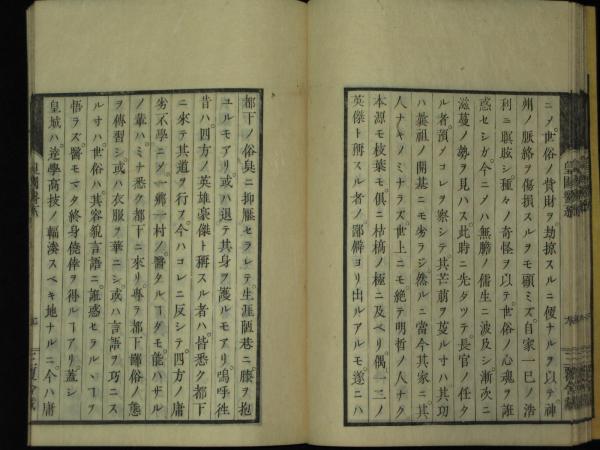 ニメ世俗ノ貨財ヲ劫掠スルニ便ナルヲ以テ神
州ノ脈絡ヲ傷損スルヲモ顧ミズ自家一巳ノ浩
利ニ瞑眩シ種々ノ奇怪ヲ以テ世俗ノ心魂ヲ誑
惑セシガ今ニメハ無膽ノ儒生ニ波及シ漸次ニ
滋蔓ノ勢ヲ見ハス此時ニ先タツテ長官ノ任タ
ル者預メコレヲ察シテ其芒萠ヲ芟ルオハ其功
ハ曩祖ノ開基ニモ劣ラジ然ルニ當今其家ニ其
人ナキノミナラズ世上ニモ絶テ明哲ノ人ナク
本源モ枝葉モ俱ニ枯槁ノ極ニ及ベリ偶一二ノ
英傑ト稱スル者ノ鄙僻ヨリ出ルアルモ遂ニハ
都下ノ俗臭ニ抑壓セラレテ生涯陋巷ニ膝ヲ抱
ユルモアリ或ハ退テ其身ヲ護ルモアリ嗚呼徃
昔ハ四方ノ英雄豪傑ト稱スル者ハ皆悉ク都下
ニ來テ其道ヲ行フ今ハコレニ反シテ四方ノ庸
劣不學ニメ一鄕一村ノ醫タルヿダモ能ハザル
ノ輩ハミナ悉ク都下ニ來リ專ラ都下鄙俗ノ態
ヲ傳習シ或ハ衣服ヲ華ニシ或ハ言語ヲ巧ニス
ルオハ世俗ハ其容貌言語ニ誑惑セラルヽヿヲ
悟ラズ醫モマタ終身僥倖ヲ得ルヿアリ蓋シ
皇城ハ達學高技ノ輻湊スベキ地ナルニ今ハ庸